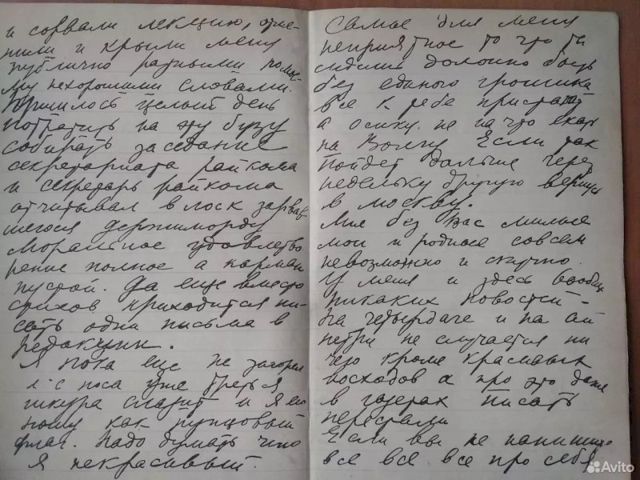 и сорвали лекцию, отме-
нили и крыли меня
публично разными поче-
му нехорошими словами.
Пришлось целый день
потратить на эту бузу
собирать заседание
секретариата райкома
и секретарь райкома
отчитывал в лоск зарвав-
шегося держиморду
Моральное удовлетво-
рение полное а карман
пустой. Да еще вместо
стихов приходится пи-
сать одни письма в
редакции.
Я пока еще не загорел
с носа уже третья
шкура слазит и я ею
ношу как пунцовый
флаг. Надо думать что
я некрасивый.
Самое для меня
неприятное то что ты
сидишь должно быть
без единого грошика
все к тебе пристают
а Осику не на что ехать
на Волгу Если так
пойдет дальше через
недельку другую вернусь
в москву.
Мне без Вас милые
мои и родные совсем
невозможно и скучно.
У меня и здесь вообще
никаких новостей -
на Чатырдаге и на Ай
петри не случается ни
чего кроме красивых
восходов а про это даже
в газетах писать
перестали
Если вы не напишите
все все все про себя
Avito